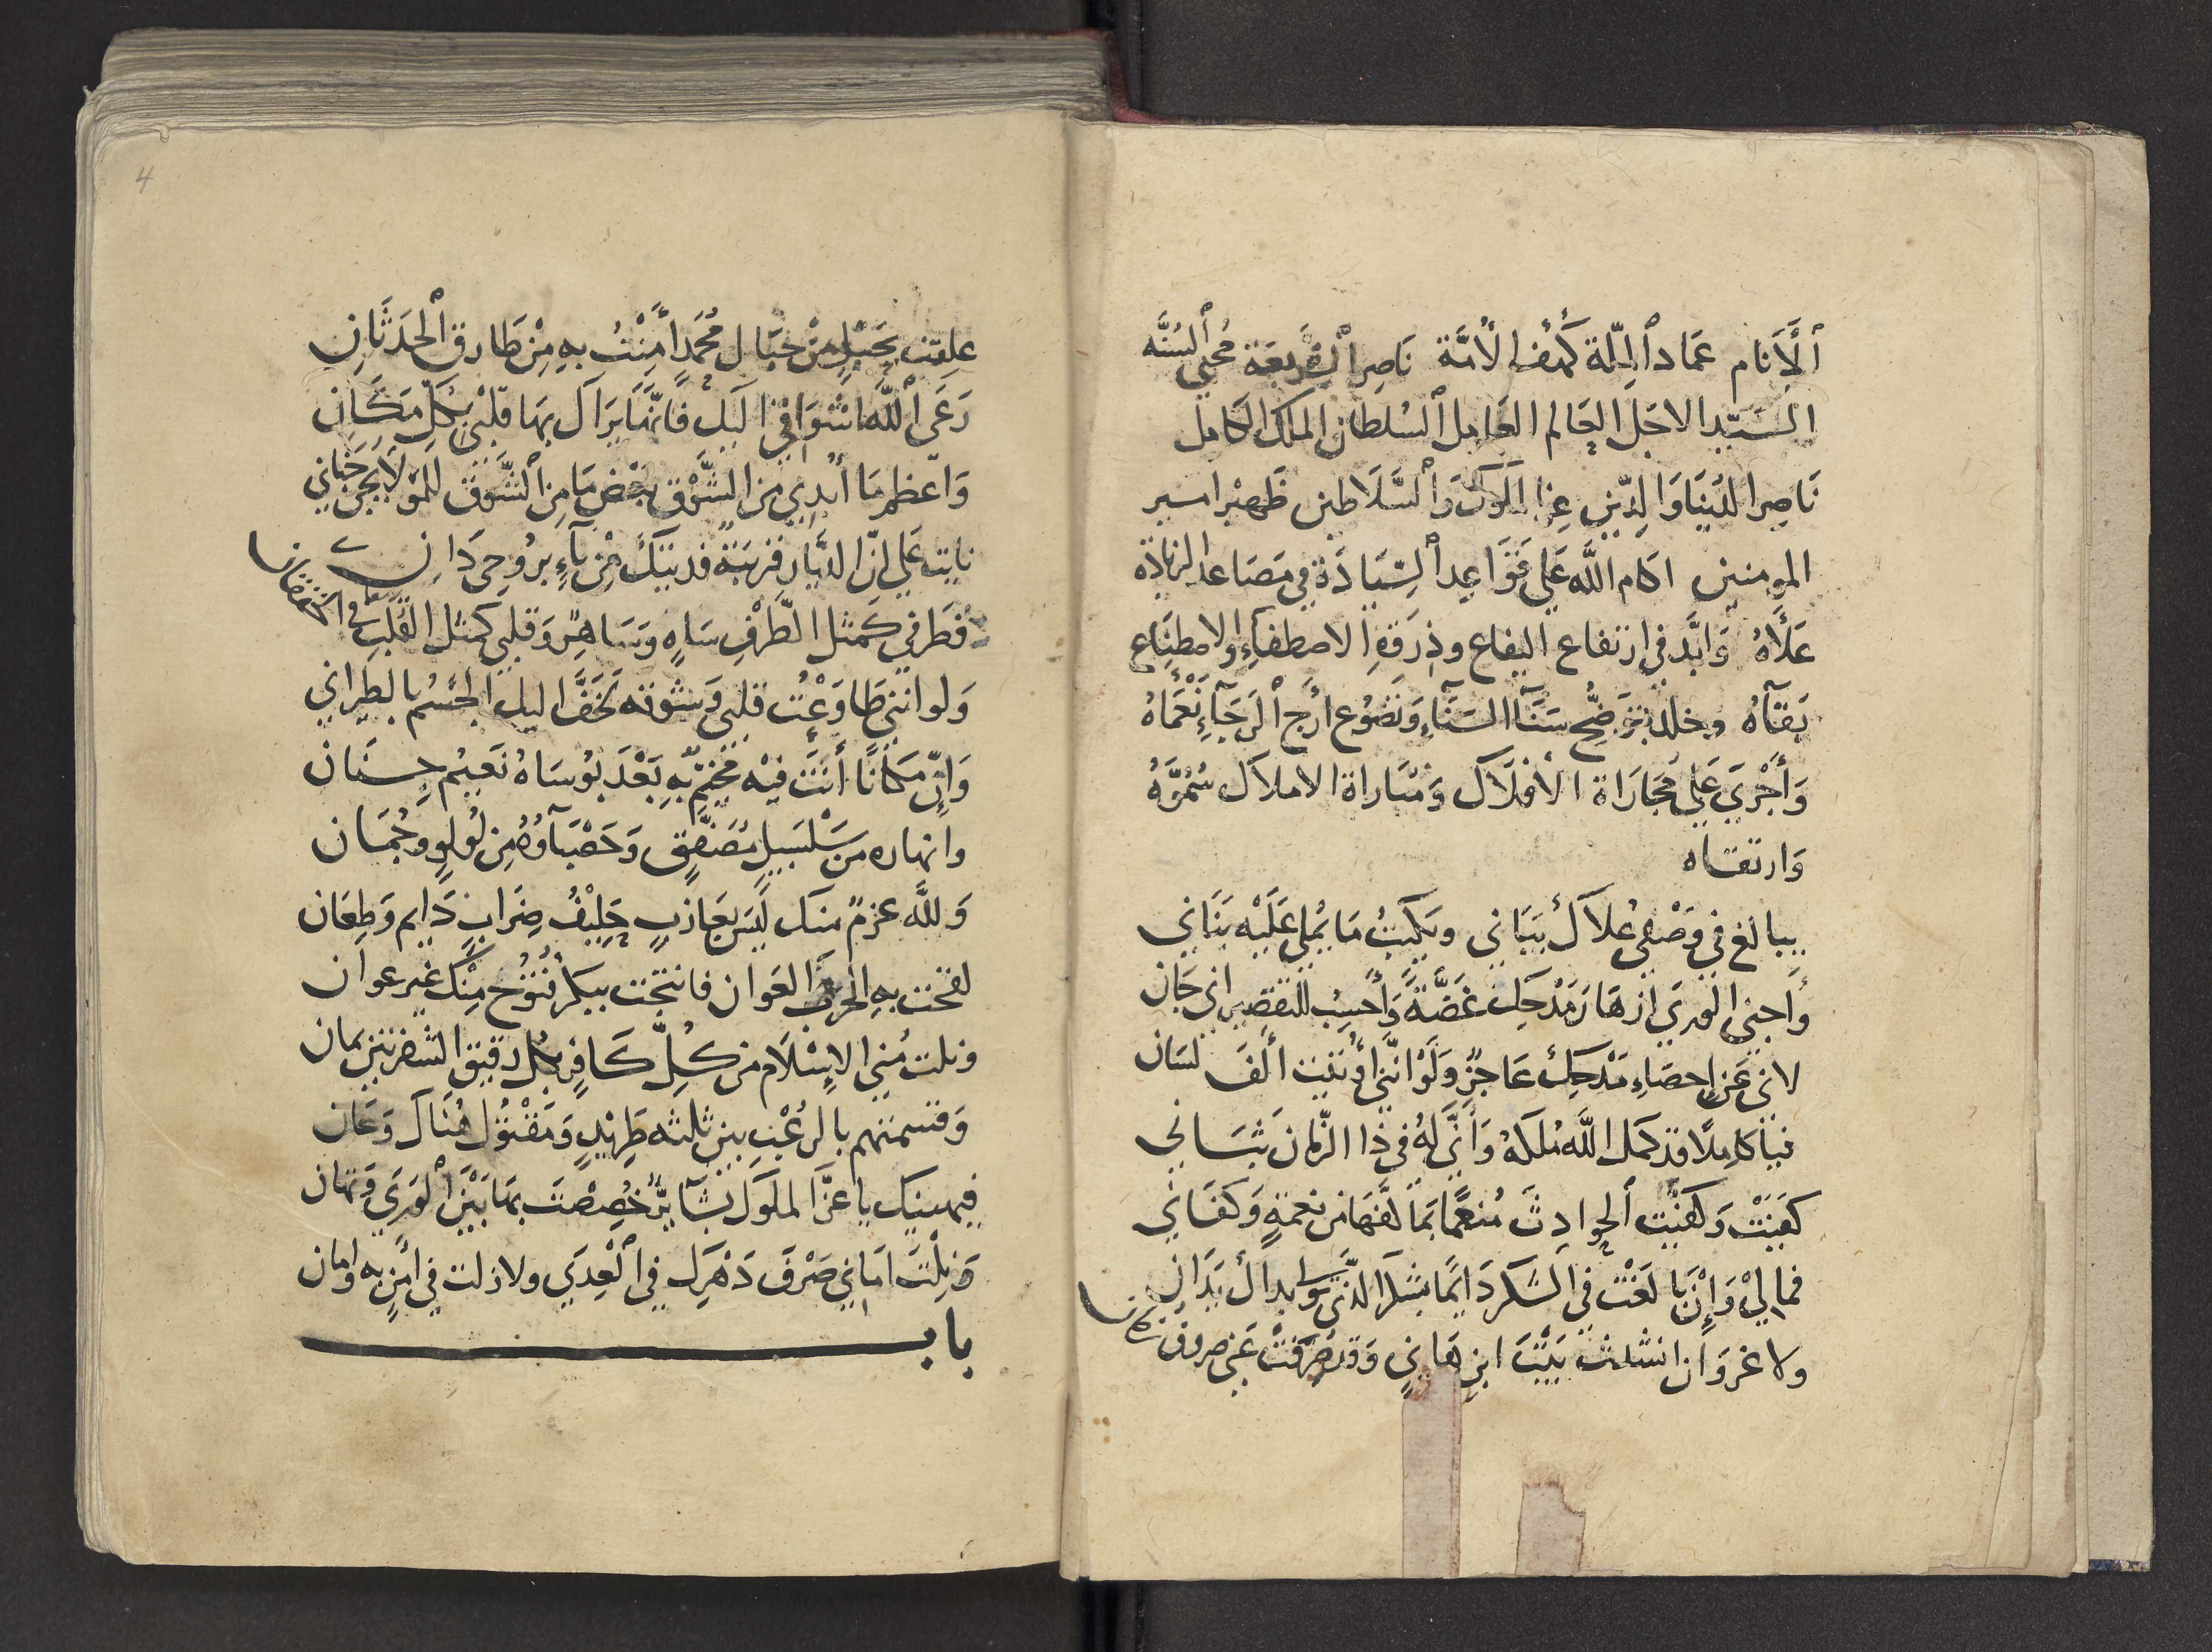 ٱلأَنام عمَاد ٱلملّة كَهْف الأمَّة نَاصِر ٱلشريعَة مُحْيي ٱلسُنَّه
السَيّد الاجَل العَالم العَامل ٱلسُلطان الملك الكَامل
نَاصِر الدُنيَا وَالدِّين عِز الملوك وَٱلسَّلَاطين ظَهير امير
المومنين اكام اللَّه عَلى قَوَاعِد ٱلسِّيَادَة في مصَاعد الزيادَه
عَلَاهُ وَابَّد في ارتفاع اليفاع وذروَةِ الاصطفاءِ والاصطناع
بَقآهُ وخلد بتوَضُّح سَنَآ السَنَآءِ وَتضَوُع أَرَج ٱلرجَآءِ نَعْمَاهُ
وَأَجْرَي عَلى مُجَارَاة الأفلَاك وَمُبَاراة الاملاك سُمُوَّهُ
وَارتقاه
يبالغ في وَصْفي عُلاكَ بيَاني ويكتبُ مَا يُملى عَلَيْه بنَاني
وأجني الورَي ازهَارَ مَدْحِكَ غَضَّةً وَأحسِبُ للتقصير اني جَان
لاني عَن إحصَاءِ مَدْحِكَ عَاجزٌ وَلَوْ انّني أُوتيت ألفَ لسَان
فيا كامِلًا قد كمل اللَّه مُلكَهُ وَأَنَّى لَهُ في ذا الزّمان بثَاني
كفيَتْ وَكفيْتَ ٱلحوادِثَ مُنعمًا بمَا لَفَّهَا من نعمَةٍ وَكفَاني
فمالي وَإِنْ بَالَغْتُ في الشكر دَايمًا بشكر الذي تولى يداكَ يَدَانِ
ولا غروَ ان انشدت بَيْتَ ابنِ هَانيٍ وَقد صَرَفَتْ عَني صروف زمَاني
علقت بحَبْلٍ مِنْ حبَال مُحَمّدٍ أَمِنْتُ بهِ مِنْ طَارق ٱلحدَثَانِ
رَعَى ٱللَّه اشوَاقي اليك فانّهَا يَرَاكَ بهَا قلبي بكلِّ مَكَانِ
وَاعظم مَا أُبدي من الشَّوْق بعضُ مَا مِن ٱلشَّوْق للمَوْلا يُجنُّ جَنَاني
نايت عَلى انّ الديَار قريبَة فديتكَ مِن نآءٍ بروُحي دَانِ
فطَرفي كَمثل الطَّرْفِ سَاهٍ وَسَاهِرٌ وَقلبي كمثل القَلْبِ في الخفقان
وَلو انني طَاوَعْتُ قلبي وَشوقه تَخَفَّ اليك الجسْمُ بالطيراني
وَإِنّ مكانًا أنتَ فيْه مخيّمٌ بهِ بَعْدَ بُوسَاهُ نَعيم جِنَان
وانهاره من سَلْسَبيلٍ مُصَفَّقٍ وَحَصْبَآؤه مِن لُولوٍ وجُمَان
وَللَّه عزمٌ منك ليسَ بعَازبٍ حَلِيْفُ ضِرَابٍ دَايم وَطِعَان
لقحت بهِ الحَربَ العَوان فانتجت ببكر فُتوُح مِنْك غير عوان
ونلت مُنى الاسْلَام من كلّ كَافرٍ بكل دقيق الشفرتين يمان
وَقسمتهم بالرُعْبِ بين ثلثه طَريْدٍ وَمَقْتوُل هُنَاكَ وَعَان
فيهنيك يا عزَّ الملوك بشآيرٌ خُصِصْتَ بهَا بَيْنَ ٱلوَرَي وَتهَان
وَنِلْتَ امَاني صَرْفَ دَهْرِك في ٱلعِدَي ولا زلت في أمنٍ به وامان
باب
4